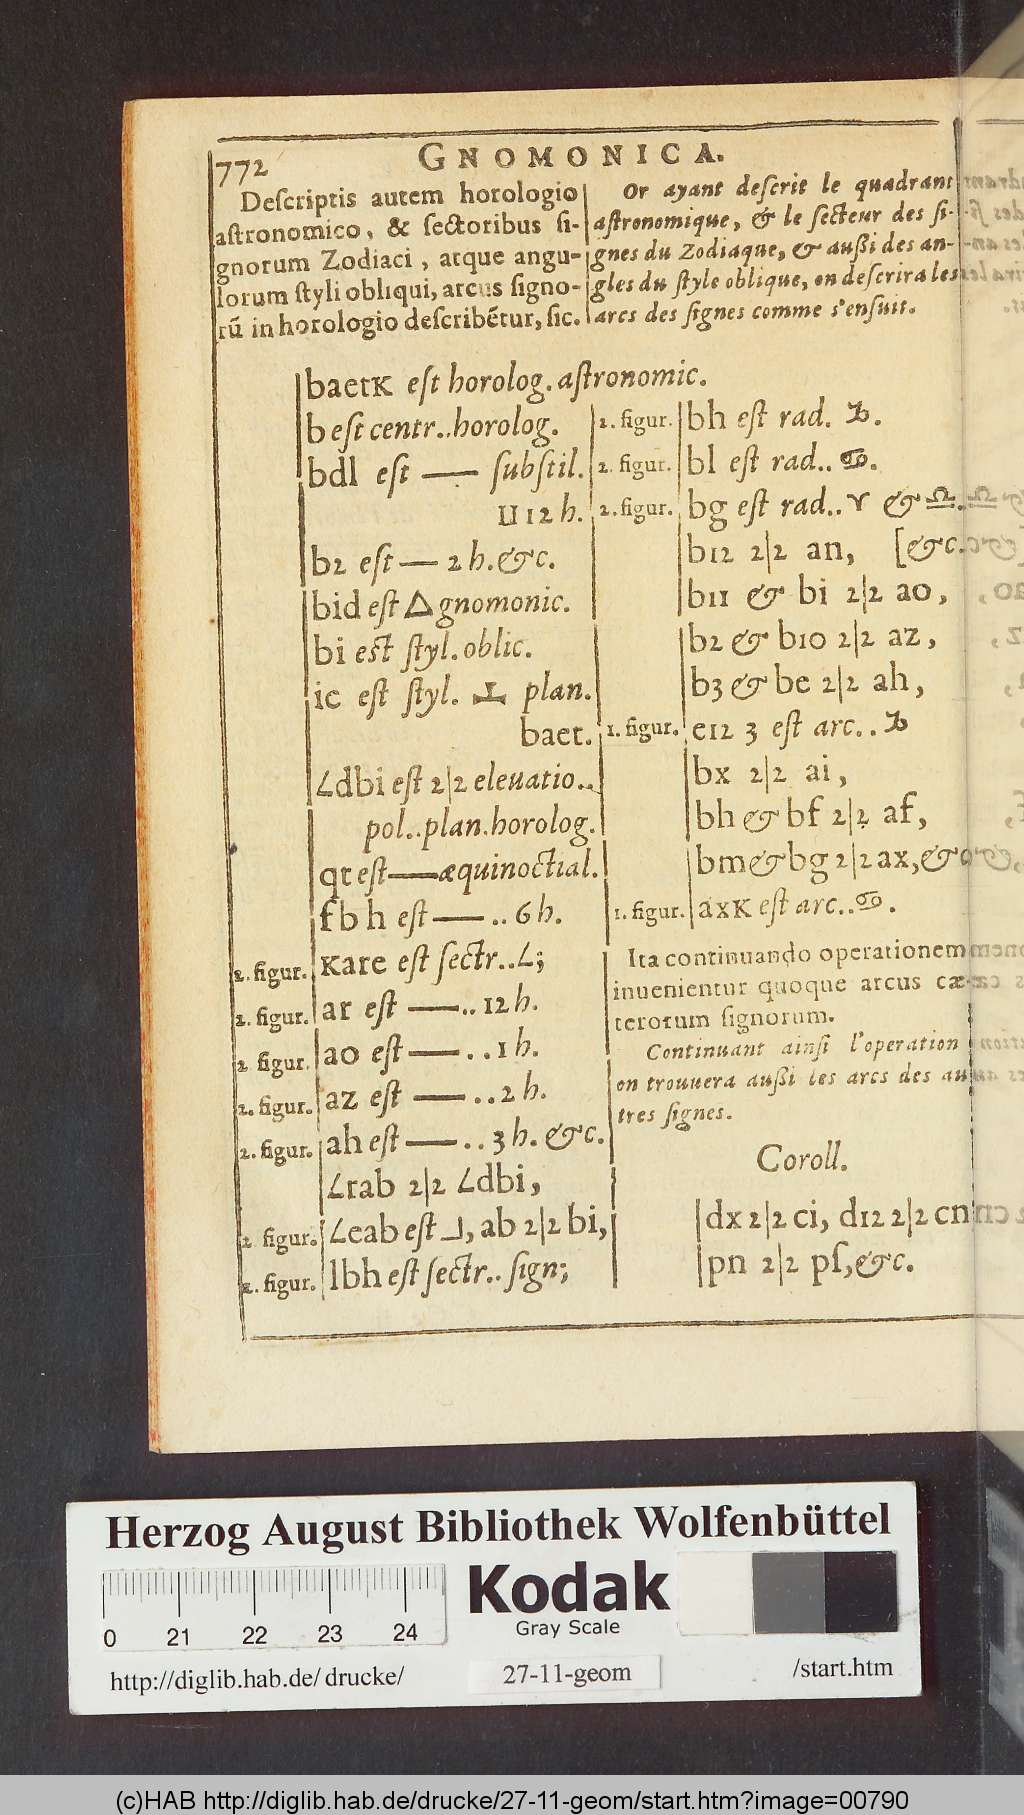 772
GNOMONICA.
Deſcriptis autem horologio
aſtronomico, & ſectoribus ſi-
gnorum Zodiaci, atque angu-
lorum ſtyli obliqui, arcus ſigno-
rū in horologio deſcribētur, ſic.
Or ayant deſcrit le quadrant
aſtronomique, & le ſecteur des ſi-
gnes du Zodiaque, & außi des an-
gles du ſtyle oblique, on deſcrira les
arcs des ſignes comme s'enſuit.
baetK eſt horolog. aſtronomic.
b eſt centr..horolog.
bdl eſt — ſubſtil.
⊔ 12 h.
b2 eſt — 2 h. &c.
bid eſt △ gnomonic.
bi est ſtyl. oblic.
ic eſt ſtyl. ⊥ plan.
baet.
∠dbi eſt 2|2 eleuatio..
pol..plan.horolog.
qt eſt — æquinoctial.
fbh eſt — .. 6 h.
2. figur. Kate eſt ſectr..∠;
2. figur. ar eſt — .. 12 h.
2. figur. ao eſt — .. 1 h.
2. figur. az eſt — .. 2 h.
2. figur. ah eſt — .. 3 h. &c.
∠rab 2|2 ∠dbi,
2. figur. ∠eab eſt ⅃, ab 2|2 bi,
2. figur. lbh eſt ſectr.. ſign;
2. figur. bh eſt rad. ♑.
2. figur. bl eſt rad.. ♋.
2. figur. bg eſt rad.. ♈ & ♎.
b12 2|2 an, [&c.
b11 & bi 2|2 ao,
b2 & b10 2|2 az,
b3 & be 2|2 ah,
1. figur. e12 3 eſt arc.. ♑
bx 2|2 ai,
bh & bf 2|2 af,
bm & bg 2|2 ax, &
1. figur. axK eſt arc.. ♋.
Ita continuando operationem
inuenientur quoque arcus cæ-
terorum ſignorum.
Continuant ainſi l'operation
on trouuera außi les arcs des au
tres ſignes.
Coroll.
dx 2|2 ci, d12 2|2 cn
pn 2|2 pſ, &c.
Herzog August Bibliothek Wolfenbüttel
0 21 22 23 24
Kodak
Gray Scale
http://diglib.hab.de/ drucke/
27-11-geom
/start.htm
(c)HAB http://diglib.hab.de/drucke/27-11-geom/start.htm?image=00790